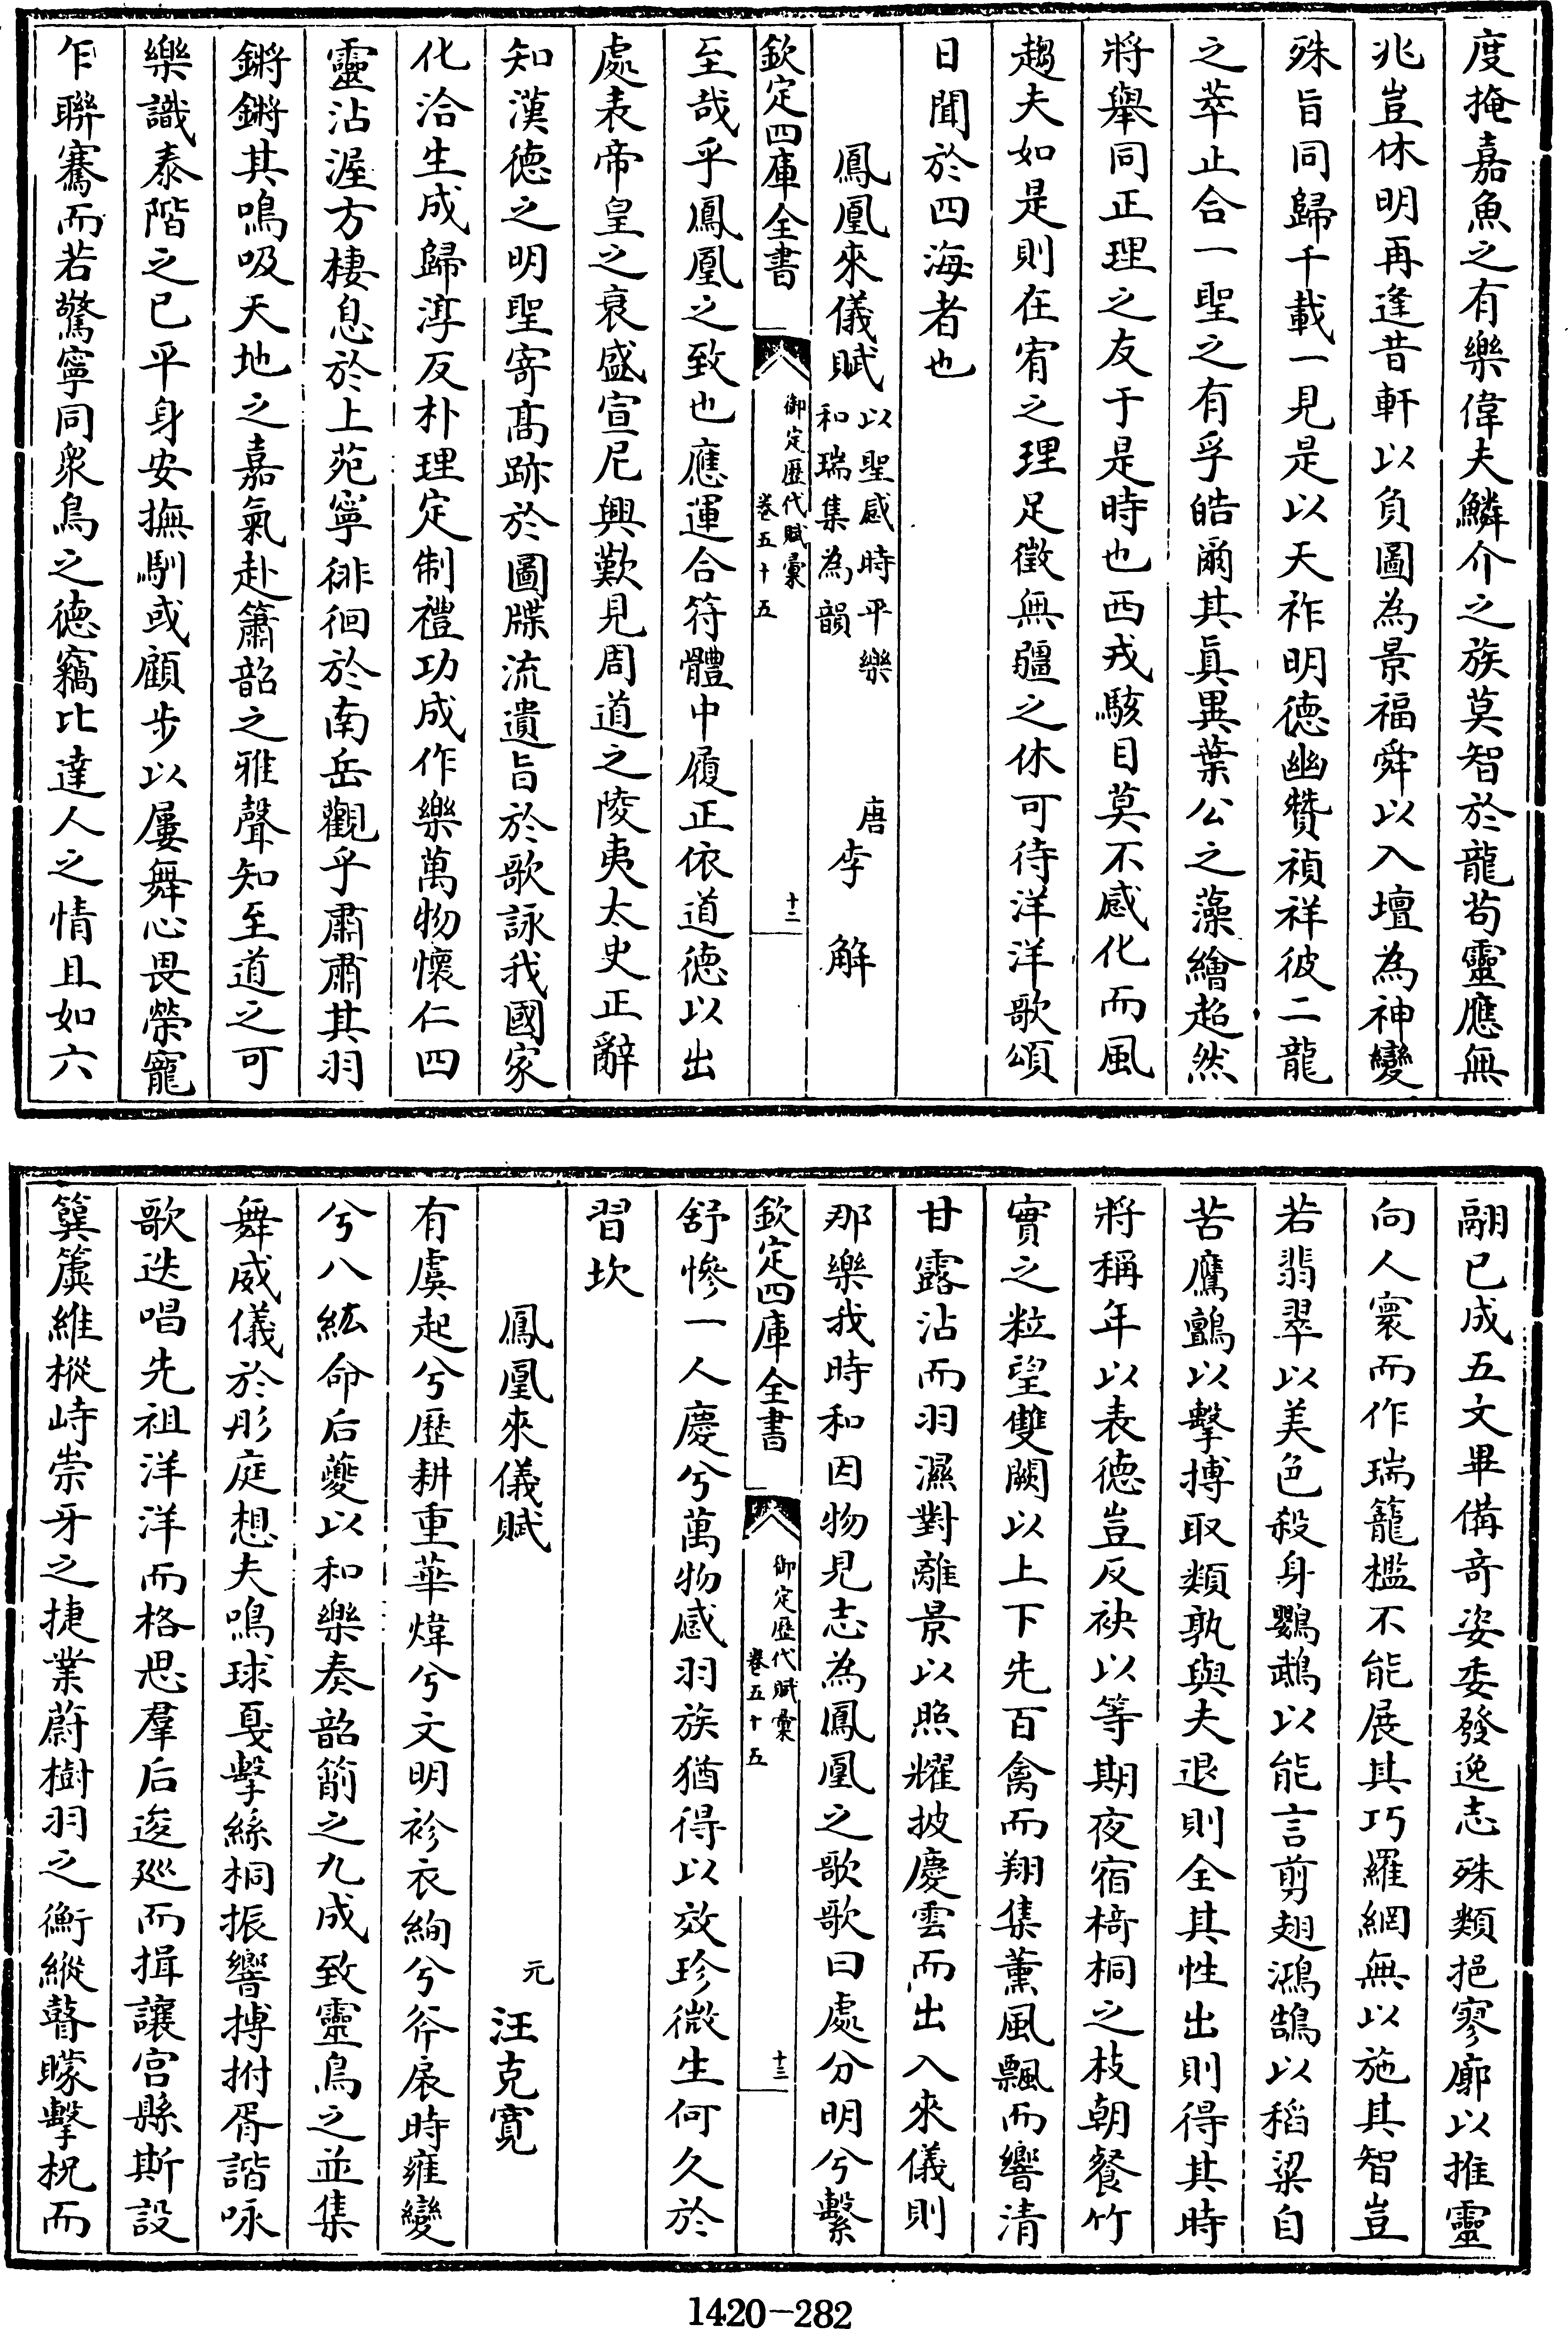 度掩嘉魚之有樂偉夫鱗介之族莫智於龍苟靈應無
兆豈休明再逢昔軒以負圖為景福舜以入壇為神變
殊旨同歸千載一見是以天祚明德幽贊禎祥彼二龍
之萃止合一聖之有孚皓爾其真異葉公之藻繪超然
將舉同正理之友于是時也西戎駭目莫不感化而風
趨夫如是則在宥之理足徵無疆之休可待洋洋歌頌
日聞於四海者也
鳳凰來儀賦 以聖感時平樂和瑞集為韻 唐李解
欽定四庫全書 御定歷代賦彙 卷五十五 十二
至哉乎鳳凰之致也應運合符體中履正依道德以出
處表帝皇之衰盛宣尼興歎見周道之陵夷太史正辭
知漢德之明聖寄髙跡於圖牒流遺旨於歌詠我國家
化洽生成歸淳反朴理定制禮功成作樂萬物懷仁四
靈沾渥方棲息於上苑寧徘徊於南岳觀乎肅肅其羽
鏘鏘其鳴吸天地之嘉氣赴簫韶之雅聲知至道之可
樂識泰階之已平身安撫馴或顧步以屢舞心畏榮寵
乍聯騫而若驚寧同衆鳥之德竊比達人之情且如六
翮已成五文畢備奇姿委發逸志殊類挹寥廓以推靈
向人寰而作瑞籠檻不能展其巧羅網無以施其智豈
若翡翠以美色殺身鸚鵡以能言剪翅鴻鵠以稻粱自
苦鷹鸇以擊搏取類孰與夫退則全其性出則得其時
將稱年以表德豈反袂以等期夜宿椅桐之枝朝餐竹
實之粒望雙闕以上下先百禽而翔集薰風飄而響清
甘露沾而羽濕對離景以照耀披慶雲而出入來儀則
那樂我時和因物見志為鳳凰之歌歌曰處分明兮繫
欽定四庫全書 御定歷代賦彙 卷五十五 十三
舒慘一人慶兮萬物感羽族猶得以效珍微生何久於
習坎
鳳凰來儀賦 元汪克寬
有虞起兮歷耕重華煒兮文明袗衣絢兮斧扆時雍變
兮八紘命后夔以和樂奏韶箾之九成致靈鳥之並集
舞威儀於彤庭想夫鳴球戛擊絲桐振響搏拊胥諧咏
歌迭唱先祖洋洋而格思羣后逡廵而揖讓宫縣斯設
簨簴維樅峙崇牙之捷業蔚樹羽之衡縱瞽矇擊柷而
1420-282